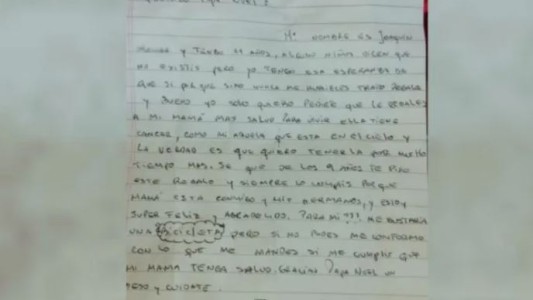 Querido Papa Noel:
Mi nombre es Joaquin
y tengo 11 años, algun niños dicen que
no existis pero yo tengo esa esperanza de
que si porque sino nunca me hubieles regalo
y bueno yo solo quiero pedir que le regales
a mi mamá mas salud para vivir ella tiene
cancer, como mi abuela que esta en el cielo y
la verdad es que quiero tenerla por mucho
tiempo mas. Se que de los 9 años te pido
este regalo y siempre lo cumplis porque
mamá esta conmigo y mis hermanos, y estoy
super feliz y agradecido. Para mi me gustaria
una bicicleta pero si no podes me conformo
con lo que me mandes si me cumplis que
mi mama tenga salud. Gracias Papa Noel un
beso y cuidate.